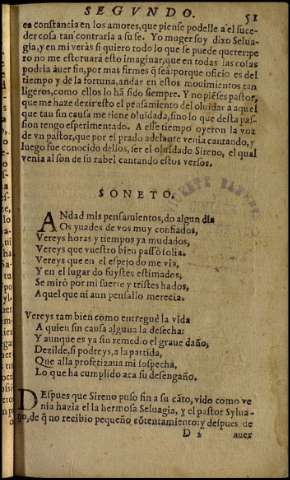 SEGVNDO. 51
ea constancia en los amores, que piense podelle a el suce-
der cosa tan contraria a su fe. Yo muger soy dixo Selua-
gia, y en mi veràs si quiero todo lo que se puede querer: pe
ro no me estoruarà esto imaginar, que en todas las cosas
podria auer fin, por mas firmes q̃ sea: porque oficio es del
tiempo y de la fortuna, andar en estos mouimientos tan
ligeros, como ellos lo hã sido siempre. Y no piẽses pastor,
que me haze dezir esto el pensamiento del oluidar a aquel
que tan sin causa me tiene oluidada, sino lo que desta pas-
sion tengo esperimentado. A este tiempo oyeron la voz
de vn pastor, que por el prado adelante venia cantando, y
luego fue conocido dellos, ser el oluidado Sireno, el qual
venia al son de su rabel cantando estos versos.
SONETO.
ANdad mis pensamientos, do algun dia
Os yuades de vos muy confiados,
Vereys horas y tiempos ya mudados,
Vereys que vuestro bien passò solia.
Vereys que en el espejo do me via,
Y en el lugar do fuystes estimados,
Se mirò por mi suerte y tristes hados,
Aquel que ni aun pensallo merecia.
Vereys tambien como entreguè la vida
A quien sin causa alguna la desecha:
Y aunque es ya sin remedio el graue daño,
Dezilde, si podreys, a la partida,
Que alla profetizaua mi sospecha,
Lo que ha cumplido aca su desengaño.
DEspues que Sireno puso fin a su cãto, vido como ve
nia hazia el la hermosa Seluagia, y el pastor Sylua-
no, de q̃ no recibio pequeño cõtentamiento: y despues de
D 2 auer